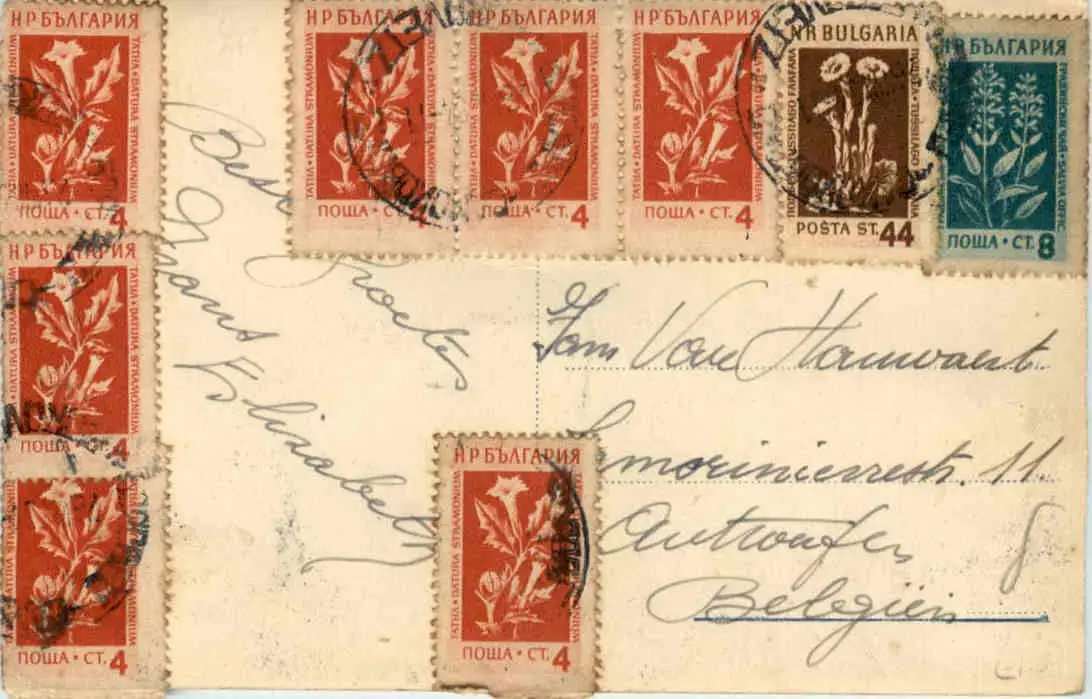 НР БЪЛГАРИЯ
ТАТУЛ · DATURA STRAMONIUM
ПОЩА · СТ. 4
НР БЪЛГАРИЯ
ТАТУЛ · DATURA STRAMONIUM
ПОЩА · СТ. 4
НР БЪЛГАРИЯ
ТАТУЛ · DATURA STRAMONIUM
ПОЩА · СТ. 4
НР БЪЛГАРИЯ
ТАТУЛ · DATURA STRAMONIUM
ПОЩА · СТ. 4
NR BULGARIA
TUSSILAGO FARFARA
POSTA ST. 44
НР БЪЛГАРИЯ
ПОЩА · СТ. 8
НР БЪЛГАРИЯ
DATURA STRAMONIUM
ПОЩА · СТ. 4
DATURA STRAMONIUM
ПОЩА · СТ. 4
НР БЪЛГАРИЯ
DATURA STRAMONIUM
ПОЩА · СТ. 4
Beste Groetes
Frans Elisabeth
Jam Van Hauwaert
11
Antwerpen
Belgiën